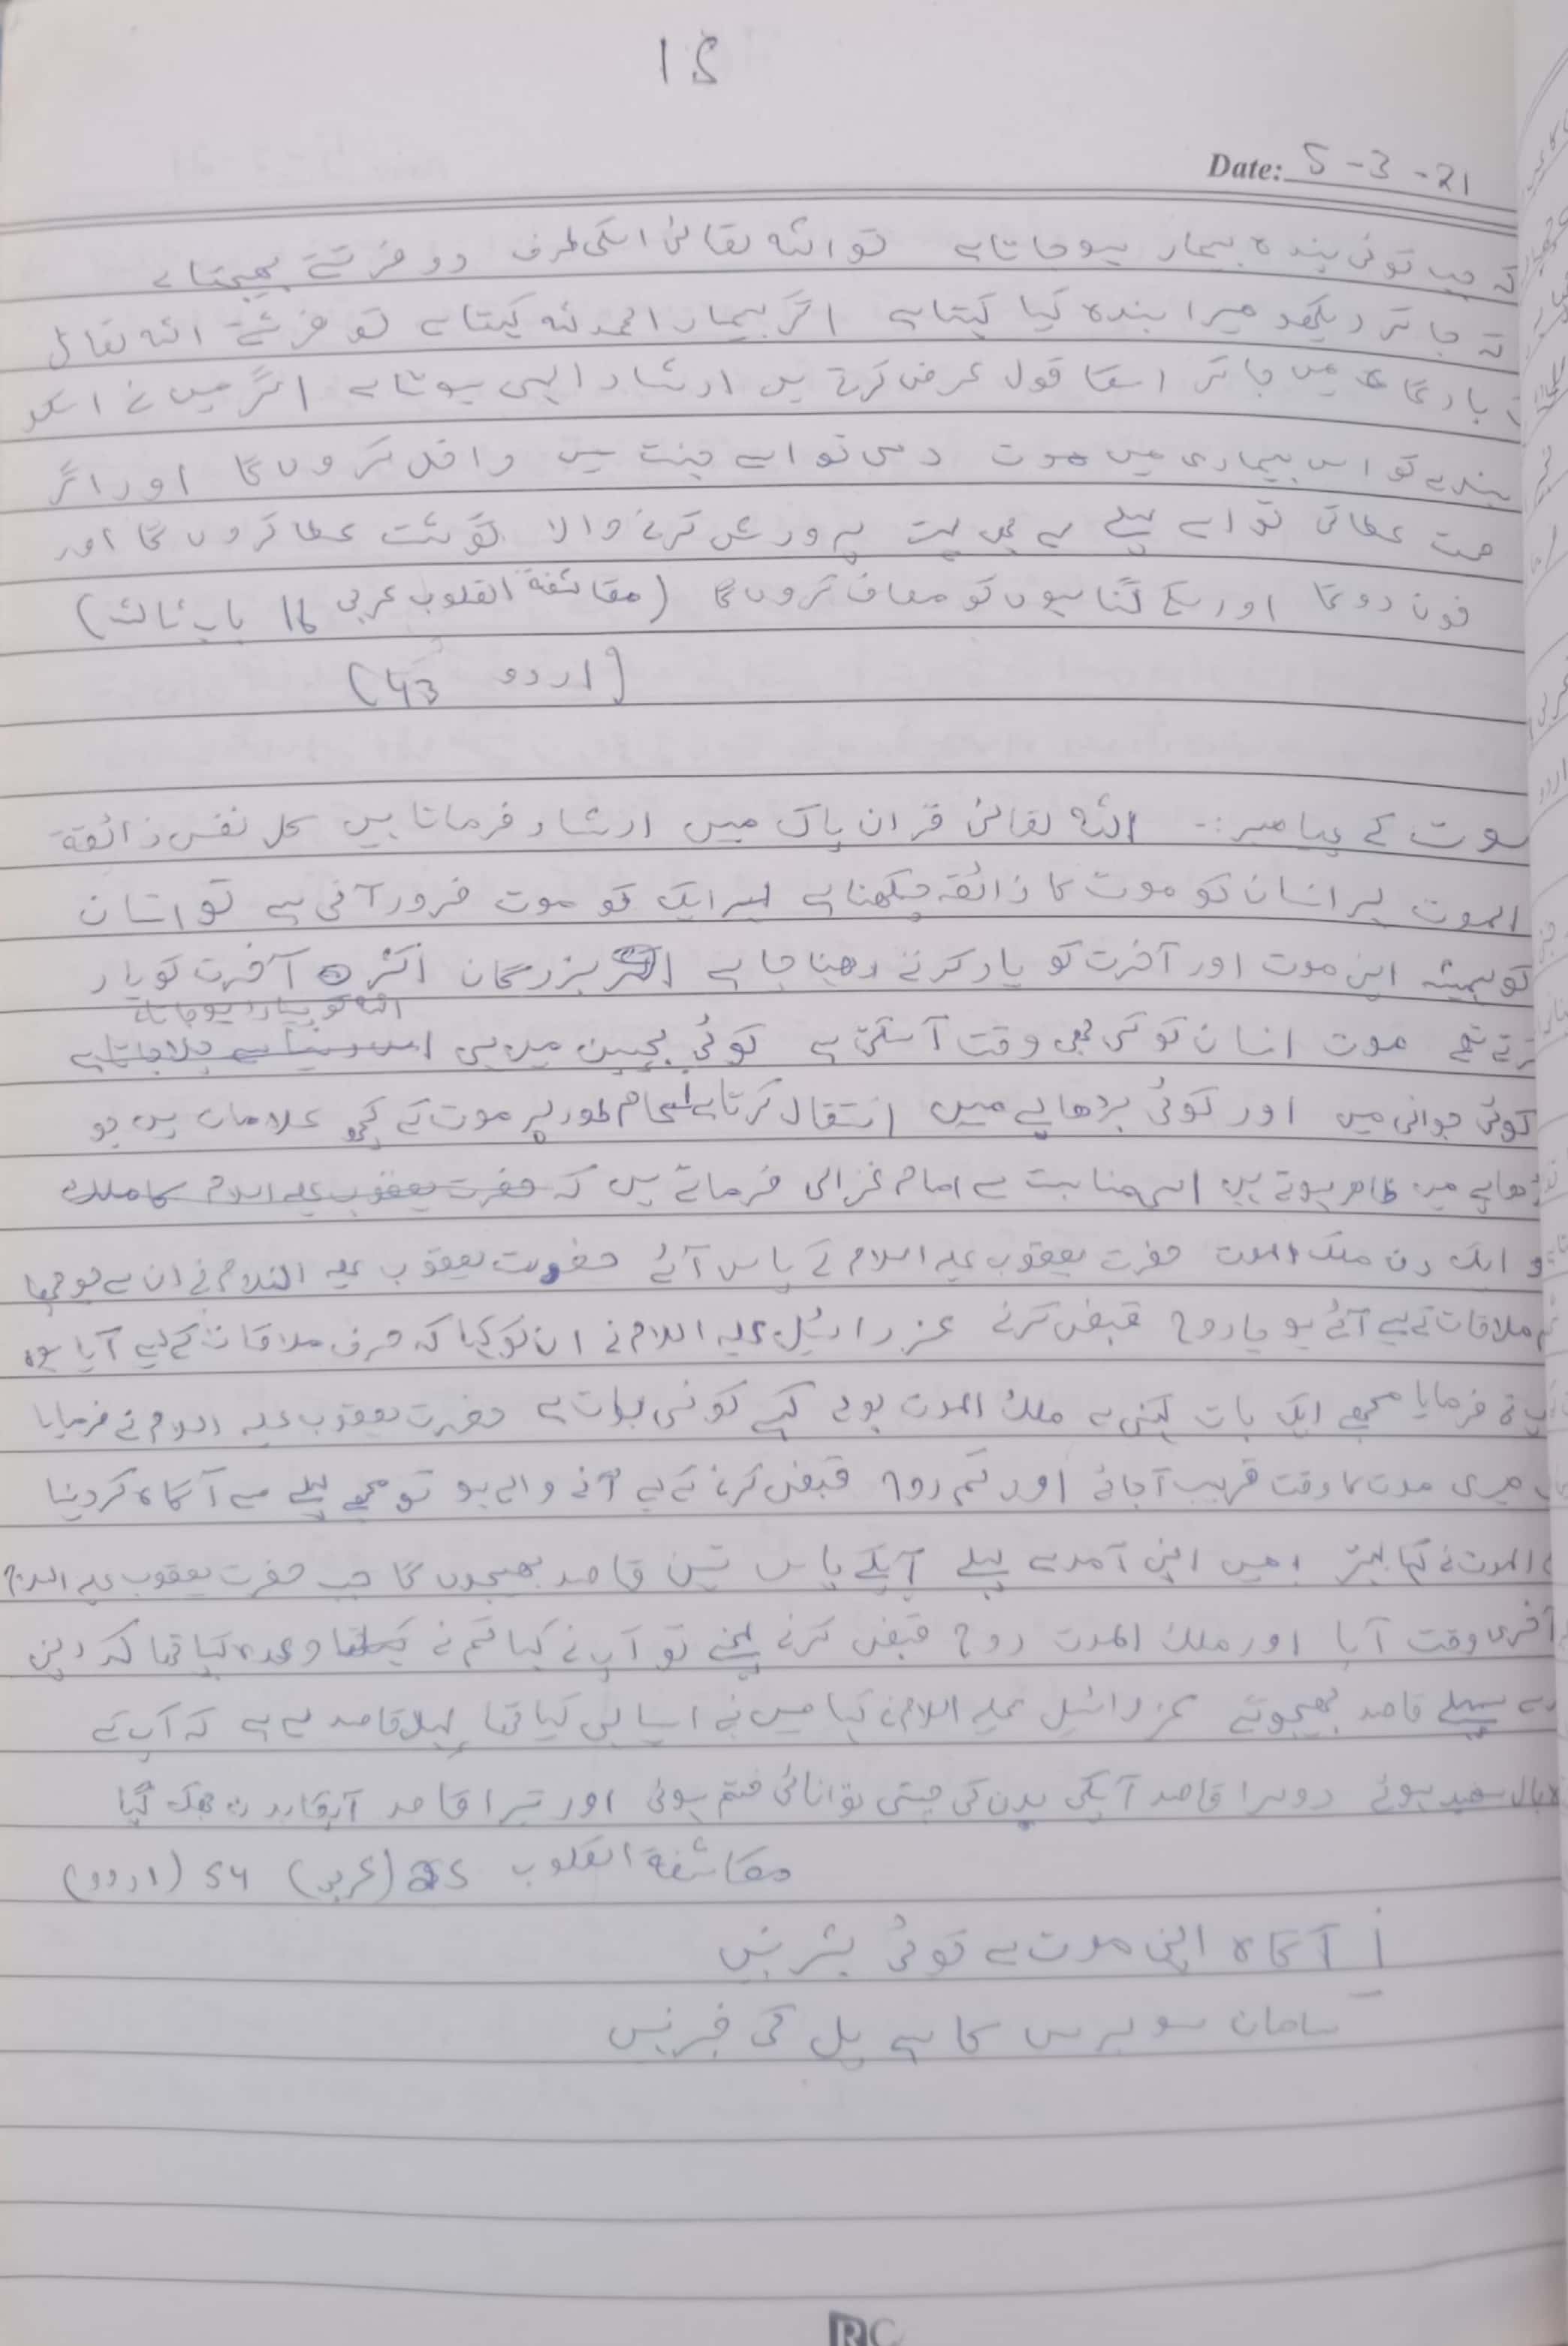 15
Date: 5-3-21
کہ جب کوئی بندہ بیمار ہوجاتاہے تو اللہ تعالیٰ اسکی طرف دو فرشتے بھیجتاہے
کہ جاکر دیکھو میرا بندہ کیا کہتاہے اگر بیمار الحمدللہ کہتاہے تو فرشتے اللہ تعالیٰ
بارگاہ میں جاکر اسکا قول عرض کرتے ہیں ارشاد الہی ہوتاہے اگر میں نے اسکو
بندے کو اس بیماری میں موت دی تو اسے جنت میں داخل کروں گا اور اگر
صحت عطا کی تو اسے پہلے سے بھی بہت پرورش کرنے والا گوشت عطا کروں گا اور
خون دونگا اور اسکے گناہوں کو معاف کروں گا (مقاشفۃ القلوب عربی 16 باب ثالث)
(اردو 43)
موت کے پیامبر:- اللہ تعالیٰ قران پاک میں ارشاد فرماتا ہیں کل نفس ذائقۃ
الموت ہر انسان کو موت کا ذائقہ چکھناہے ہر ایک کو موت ضرور آنی ہے تو انسان
کو ہمیشہ اپنی موت اور آخرت کو یاد کرتے رہنا چاہیے بزرگان اکثر آخرت کو یاد
اللہ کو پیارا ہوجاتاہے
کرتے تھے موت انسان کو کسی بھی وقت آسکتی ہے کوئی بچپن میں ہی اس دنیا سے چلا جاتاہے
کوئی جوانی میں اور کوئی بڑھاپے میں انتقال کرتاہے عام طور پر موت کے کچھ علامات ہیں جو
بڑھاپے میں ظاہر ہوتے ہیں اسی مناسبت سے امام غزالی فرماتے ہیں کہ حضرت یعقوب علیہ السلام کا ملک
ایک دن ملک الموت حضرت یعقوب علیہ السلام کے پاس آئے حضرت یعقوب علیہ السلام نے ان سے پوچھا
تم ملاقات کے لیے آئے ہو یا روح قبض کرنے عزرائیل علیہ السلام نے ان کو کہا کہ صرف ملاقات کے لیے آیا ہوں
آپ نے فرمایا مجھے ایک بات کہنی ہے ملک الموت بولے کہیے کونسی بات ہے حضرت یعقوب علیہ السلام نے فرمایا
میری موت کا وقت قریب آجائے اور تم روح قبض کرنے کے لیے آنے والے ہو تو مجھے پہلے سے آگاہ کردینا
الموت نے کہا بہتر میں اپنی آمد سے پہلے آپکے پاس تین قاصد بھیجوں گا جب حضرت یعقوب علیہ السلام
آخری وقت آیا اور ملک الموت روح قبض کرنے پہنچے تو آپ نے کہا تم نے وعدہ کیا تھا کہ اپنی
سے پہلے قاصد بھیجوگے عزرائیل علیہ السلام نے کہا میں نے ایسا ہی کیا تھا پہلا قاصد یہ ہے کہ آپ کے
بال سفید ہوئے دوسرا قاصد آپکی بدن کی چستی توانائی ختم ہوئی اور تیسرا قاصد آپکا بدن جھک گیا
مقاشفۃ القلوب 25 (عربی) 54 (اردو)
آگاہ اپنی موت سے کوئی بشر نہیں
سامان سو برس کا ہے پل کی خبر نہیں
RC